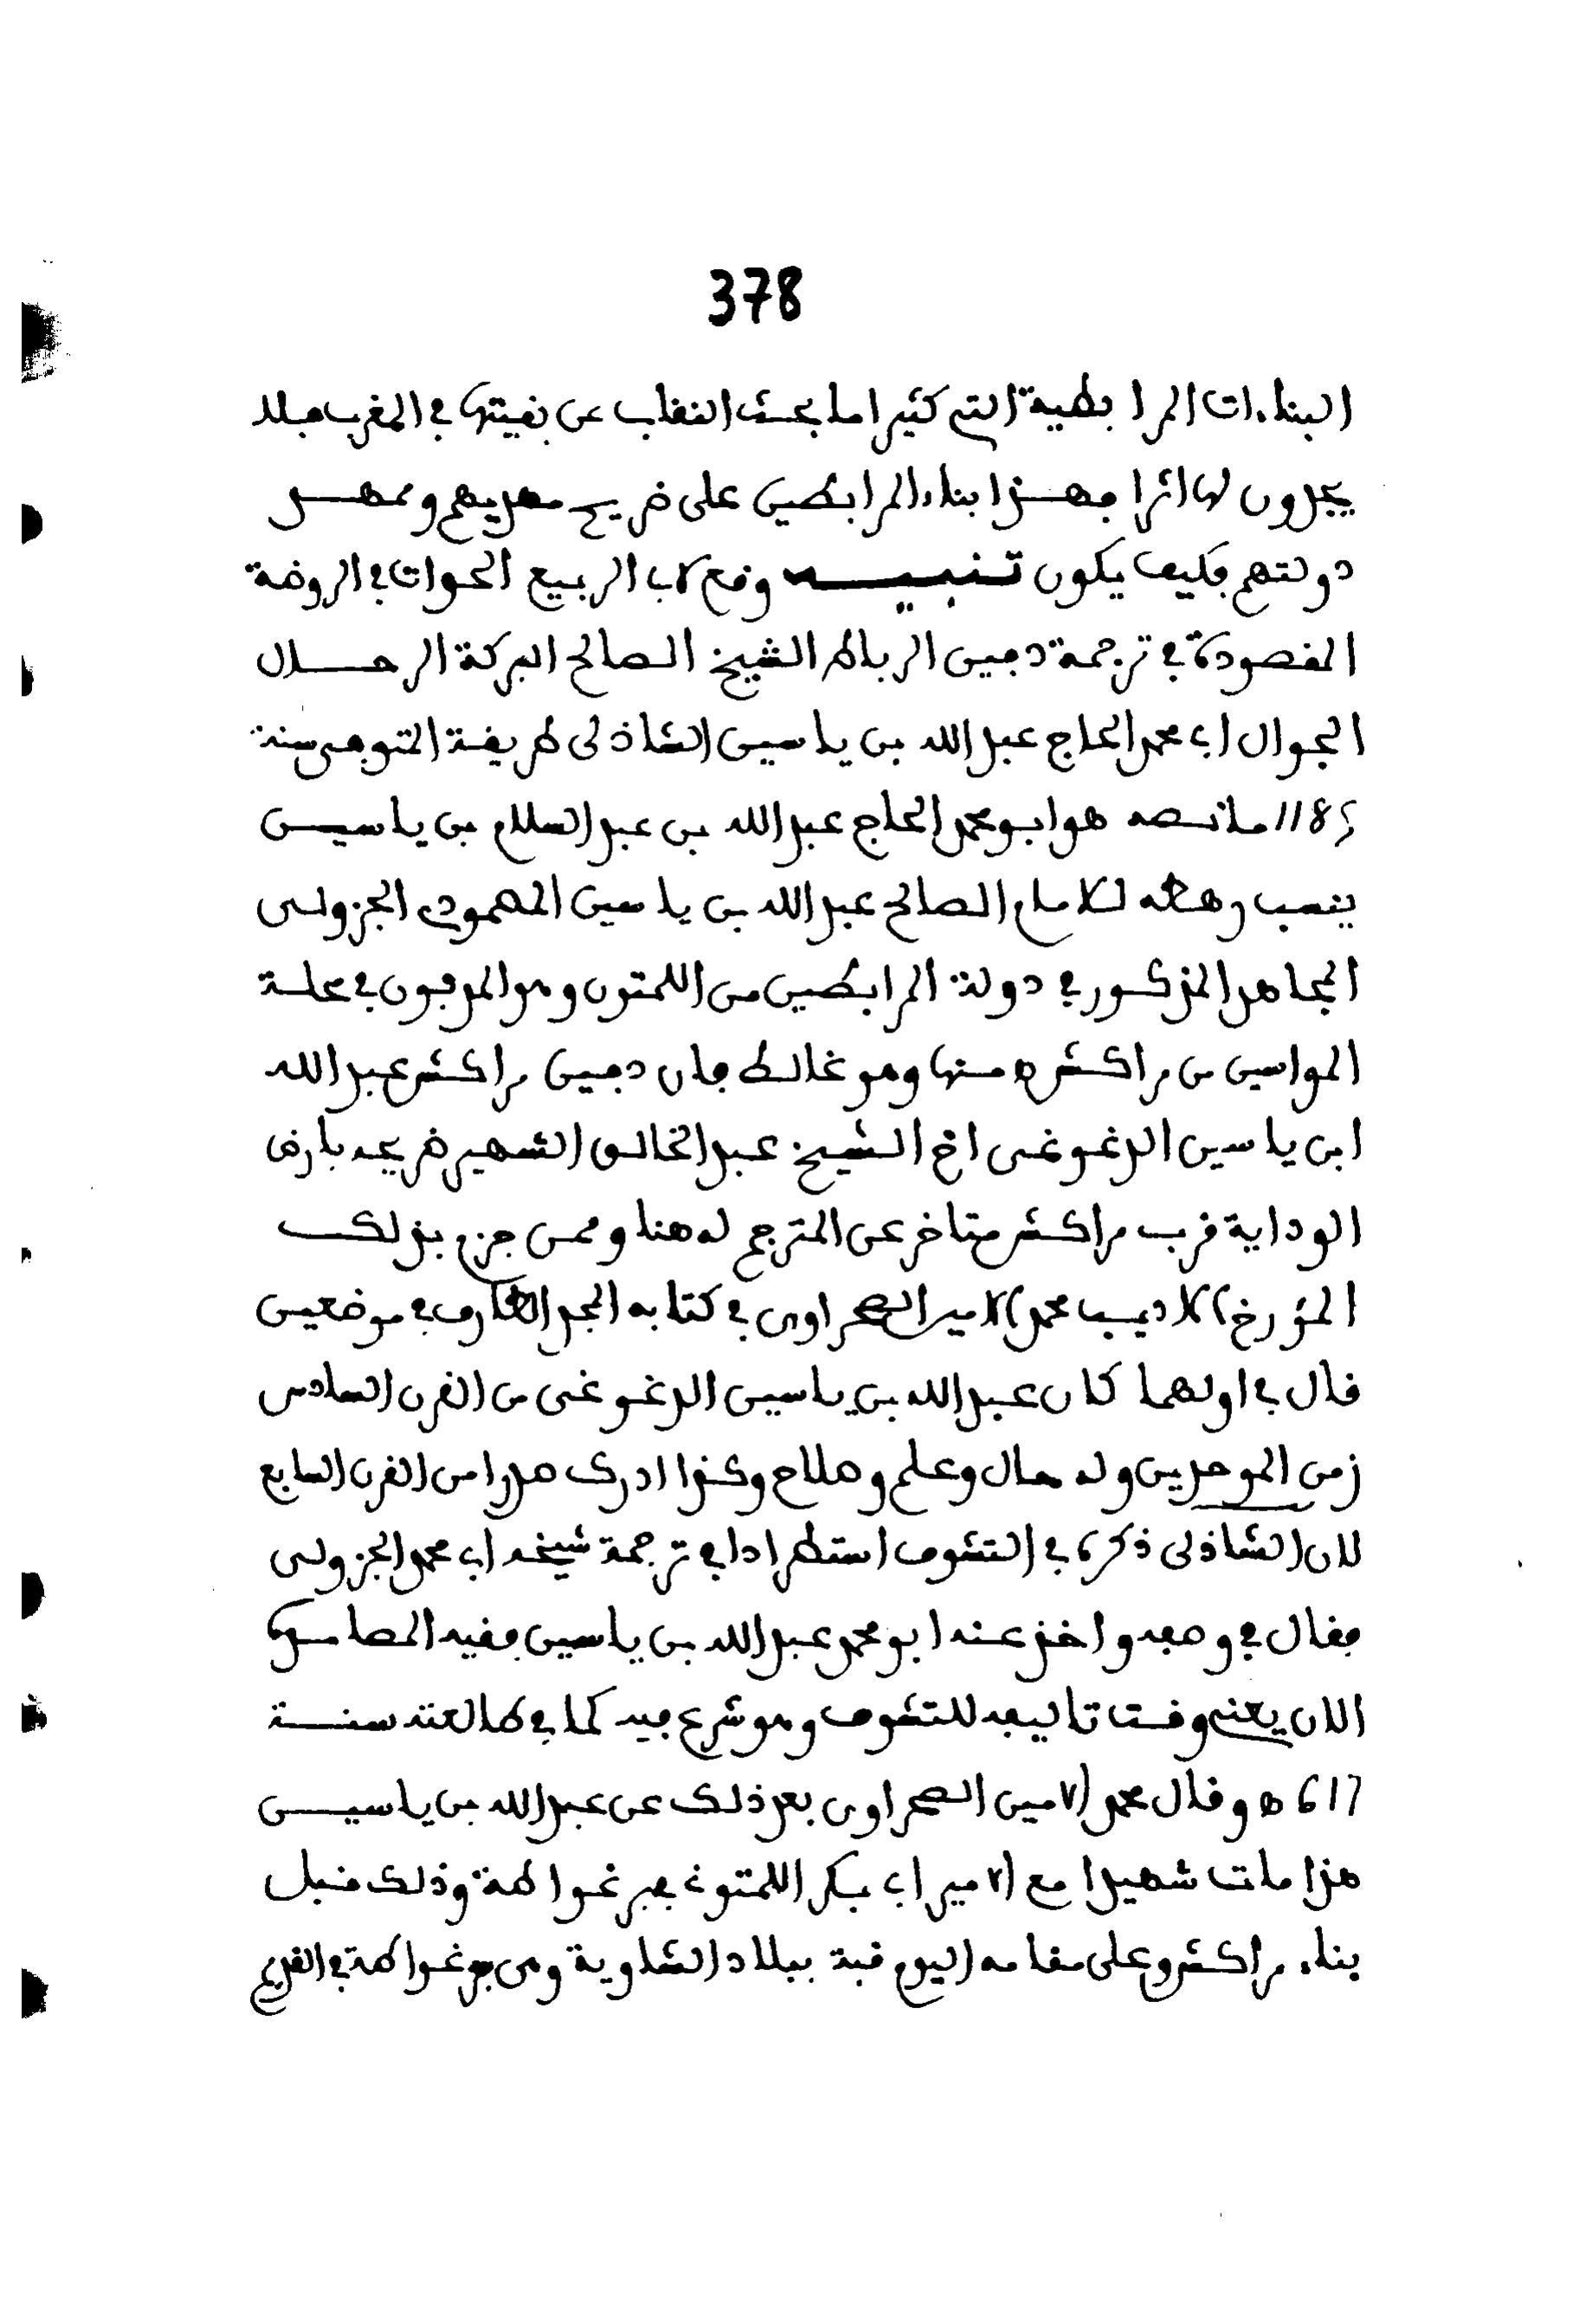 378
البناءات المرابطية التي كثيرا ما بحث النقاب عن بقيتها في المغرب فلا
يجدون لها اثرا فهذا بناء المرابطين على ضريح مهديهم وممهد
دولتهم فكيف يكون تنبيه وقع لابي الربيع الحوات في الروضة
المقصودة في ترجمة دفين الرباط الشيخ الصالح البركة الرحال
الجوال ابي محمد الحاج عبد الله بن ياسين الشاذلي طريقة المتوفى سنة
1185 ما نصه هو ابو محمد الحاج عبد الله بن عبد السلام بن ياسين
ينسب رهطه للامام الصالح عبد الله بن ياسين الجزولي
المجاهد المذكور في دولة المرابطين من اللمتون وهو المدفون في محلة
المواسين من مراكش ه منها وهو غالط فان دفين مراكش عبد الله
ابن ياسين الدغوغي اخ الشيخ عبد الخالق الشهير ضريحه بارض
الوداية قرب مراكش متاخر عن المترجم له هنا وممن جزم بذلك
المؤرخ الاديب محمد الامير الصحراوي في كتابه المجد الطارف في موضعين
قال في اولهما كان عبد الله بن ياسين الدغوغي من القرن السادس
زمن الموحدين وله حال وعلم وصلاح وكذا ادرك صدرا من القرن السابع
لان الشاذلي ذكره في التشوف استطرادا في ترجمة شيخه ابي محمد الجزولي
فقال في وصفه واخذ عنه ابو محمد عبد الله بن ياسين فقيه المصامدة
الان يعني وقت تاليفه للتشوف وهو شرع فيه كما في طالعته سنة
617 ه وقال محمد الامين الصحراوي بعد ذلك عن عبد الله بن ياسين
هذا مات شهيدا مع الامير ابي بكر اللمتوني ببرغواطة وذلك قبل
بناء مراكش وعلى مقامه اليوم قبة ببلاد الشاوية وهي برغواطة في القديم